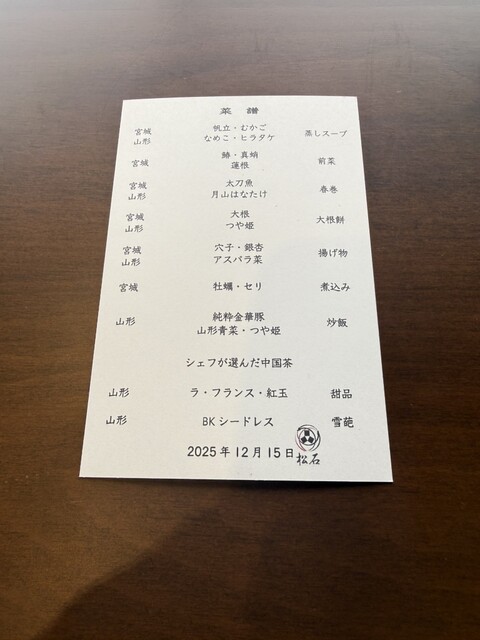 菜 譜
宮城 山形 帆立・むかご なめこ・ヒラタケ 蒸しスープ
宮城 鰆・真蛸 蓮根 前菜
宮城 山形 太刀魚 月山はなたけ 春巻
宮城 山形 大根 つや姫 大根餅
宮城 山形 穴子・銀杏 アスパラ菜 揚げ物
宮城 牡蠣・セリ 煮込み
山形 純粋金華豚 山形青菜・つや姫 炒飯
シェフが選んだ中国茶
山形 ラ・フランス・紅玉 甜品
山形 BKシードレス 雪葩
2025年12月15日 松石